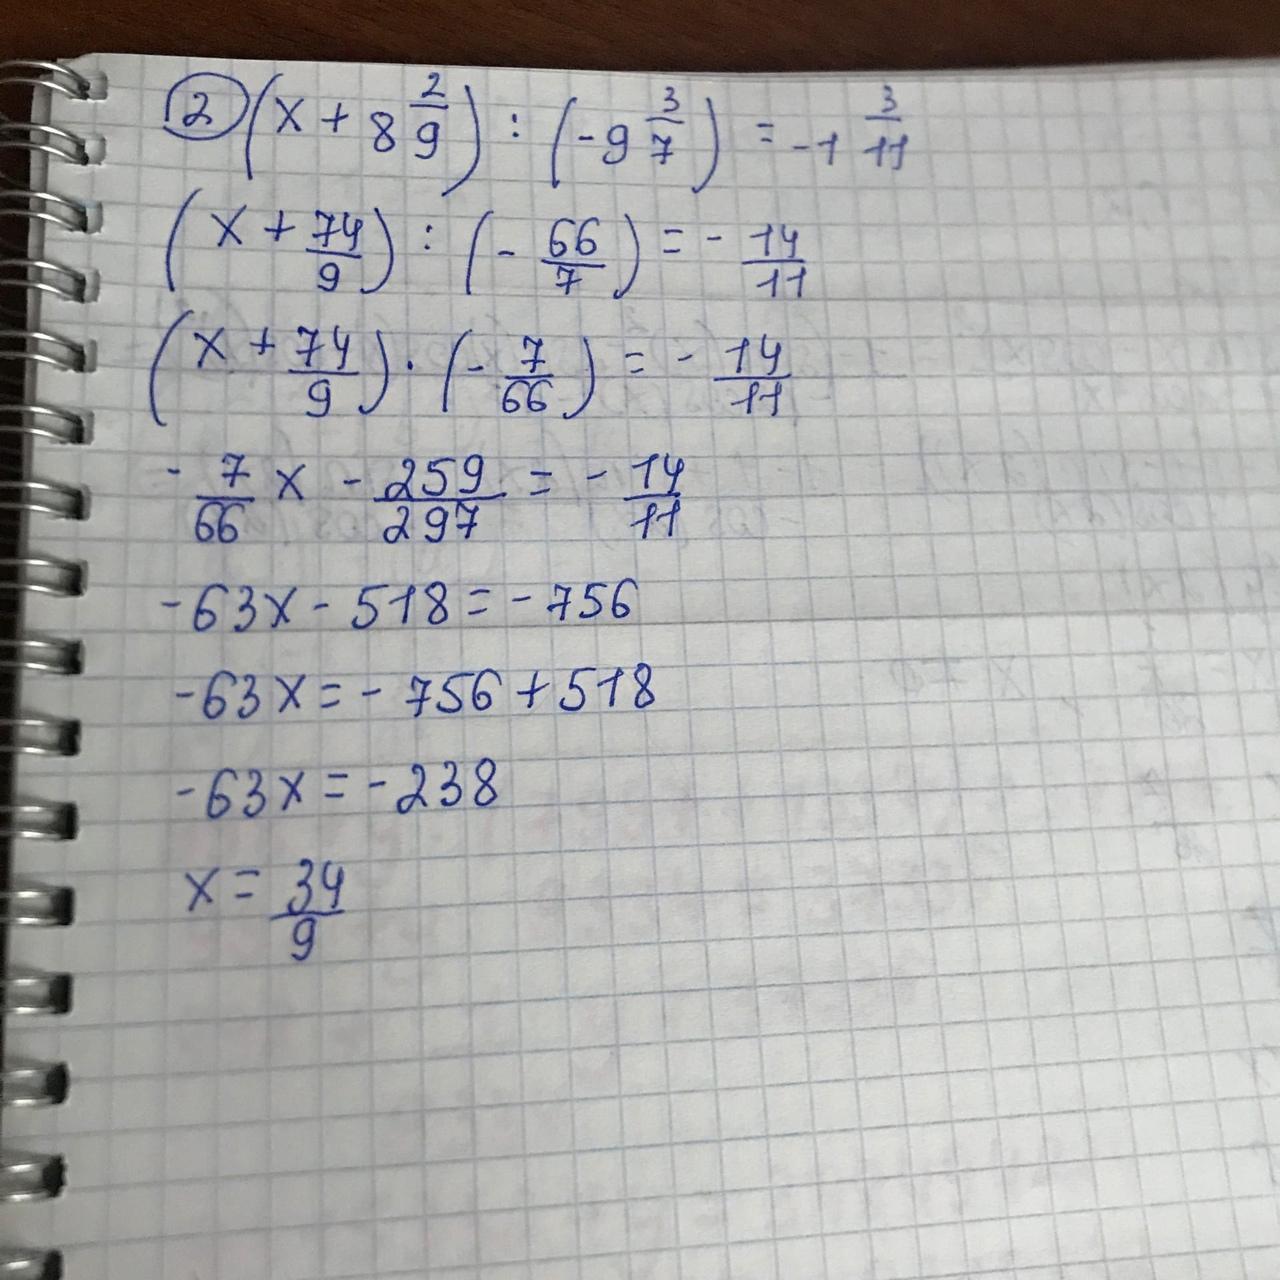 ② (x + 8 2/9) : (-9 3/7) = -1 3/11
(x + 74/9) : (- 66/7) = - 14/11
(x + 74/9) · (- 7/66) = - 14/11
- 7/66 x - 259/297 = - 14/11
-63x - 518 = - 756
-63x = - 756 + 518
-63x = - 238
x = 34/9